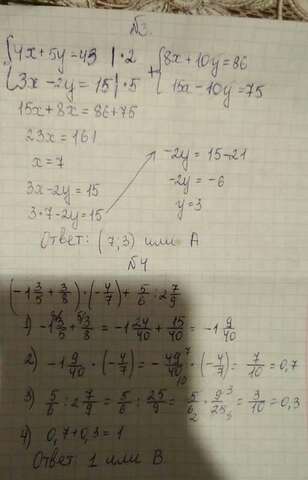 №3.
{4x+5y=43 |·2 + {8x+10y=86
{3x-2y=15 |·5 {15x-10y=75
15x+8x=86+75
23x=161
x=7
3x-2y=15
3·7-2y=15
-2y=15-21
-2y=-6
y=3
Ответ: (7;3) или А
№4
(-1 3/5 + 3/8)·(-4/7) + 5/6 : 2 7/9
1) -1 3/5 + 3/8 = -1 24/40 + 15/40 = -1 9/40
2) -1 9/40 · (-4/7) = -49/40 · (-4/7) = 7/10 = 0,7
3) 5/6 : 2 7/9 = 5/6 : 25/9 = 5/6 · 9/25 = 3/10 = 0,3
4) 0,7+0,3=1
Ответ: 1 или В.